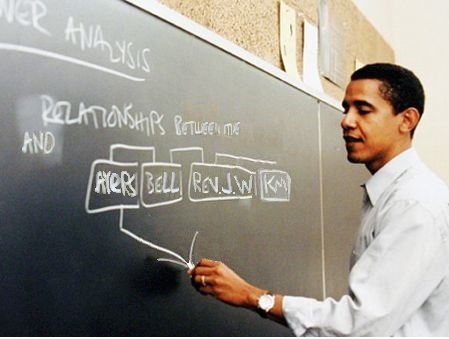 WER ANALYSIS
RELATIONSHIPS BETWEEN ME
AND
AYERS BELL REV. J. W KM